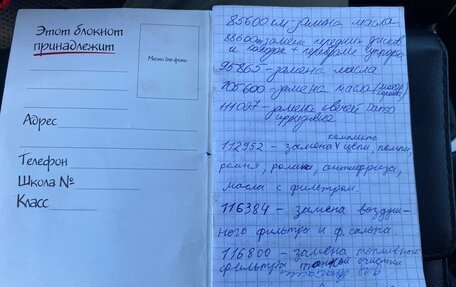 Этот блокнот
принадлежит
Место для фото
Адрес
Телефон
Школа №
Класс
85600 км замена масла
88600 замена передних дисков
и колодок + передняя
95865 - замена масла
105600 - замена масла (мотор
111027 - замена свечей Denso
иридиевые
комплекта
112952 - замена цепи, помпы,
ремня, ролика, антифреза,
масла с фильтром.
116384 - замена воздуш-
ного фильтра и ф. салона.
116800 - замена топливного
фильтра тонкой очистки